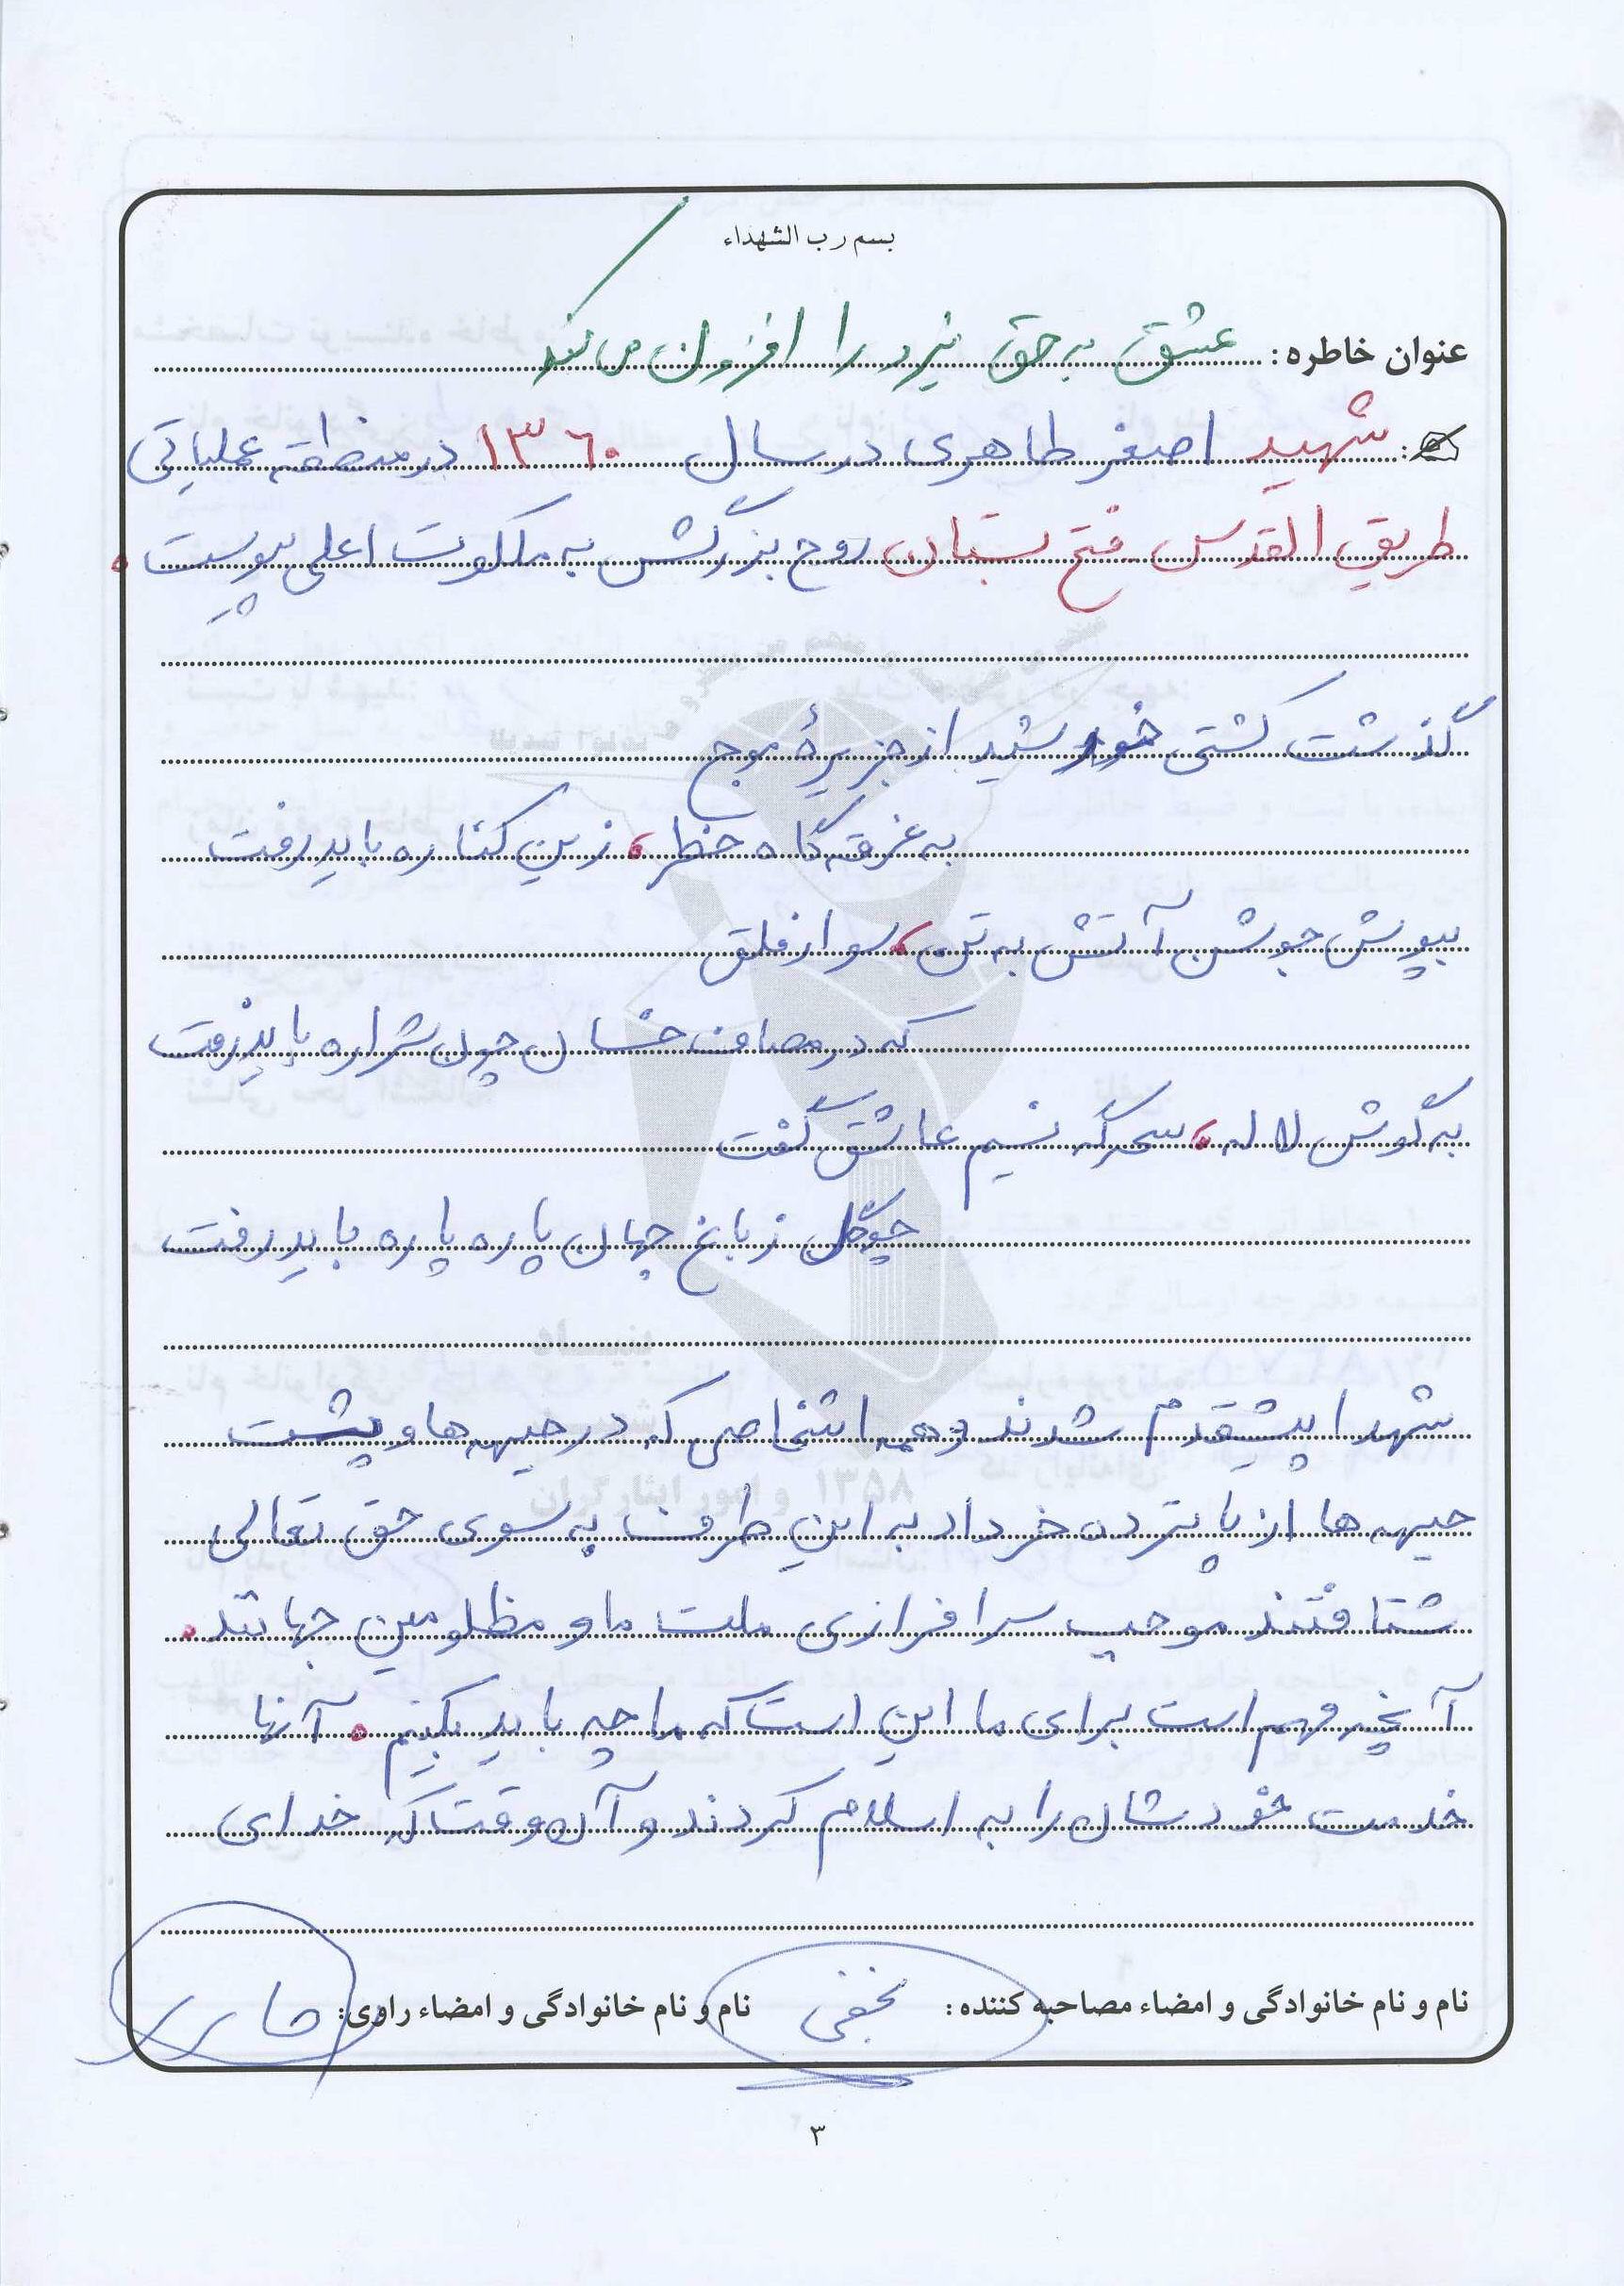 بسم رب الشهداء
عنوان خاطره: عشق به حق نبرد را افزون می کند
شهید اصغر طاهری در سال ۱۳۶۰ در منطقه عملیاتی
طریق القدس فتح بستان روح بزرگش به ملکوت اعلی پیوست.
گذشت کشتی خورشید از جزیرهٔ موج
به غرقه گاه خطر، زین کناره باید رفت
بپوش جوشن آتش به تن، سوار فلق
که در مصاف خسان چون شراره باید رفت
به گوش لاله، سحرگه نسیم عاشق گفت
چو گل ز باغ جهان پاره پاره باید رفت
شهدا پیشقدم شدند و همه اشخاصی که در جبهه ها و پشت
جبهه ها از پانزده خرداد به این طرف به سوی حق تعالی
شتافتند موجب سرافرازی ملت ما و مظلومین جهانند.
آنچه مهم است برای ما این است که ما چه باید بکنیم. آنها
خدمت خودشان را به اسلام کردند و آن وقت که خدای
نام و نام خانوادگی و امضاء مصاحبه کننده: نجفی
نام و نام خانوادگی و امضاء راوی:
۳